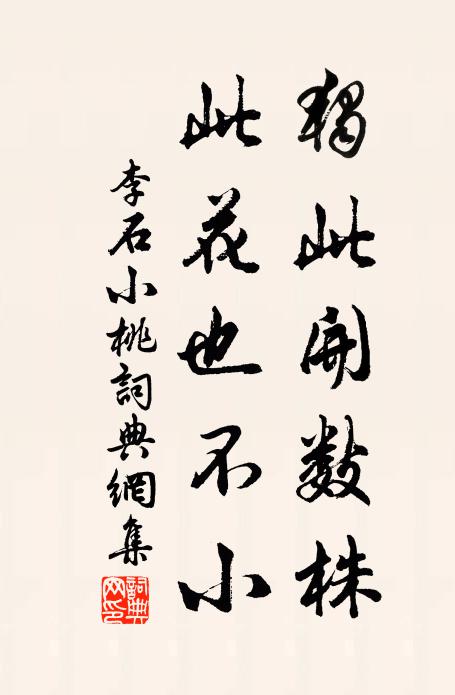 獨此開數株
此花也不小
李石小桃詞典網集
詞典網印